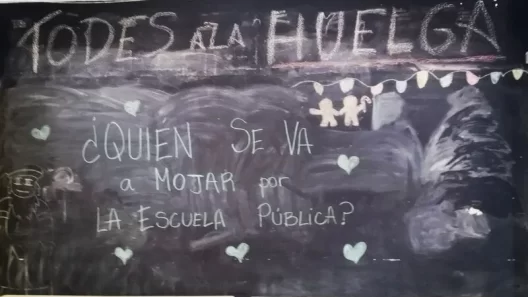 TODES a LA HUELGA
¿QUIEN SE VA
a MOJAR por
LA ESCUELA PÚBLICA?